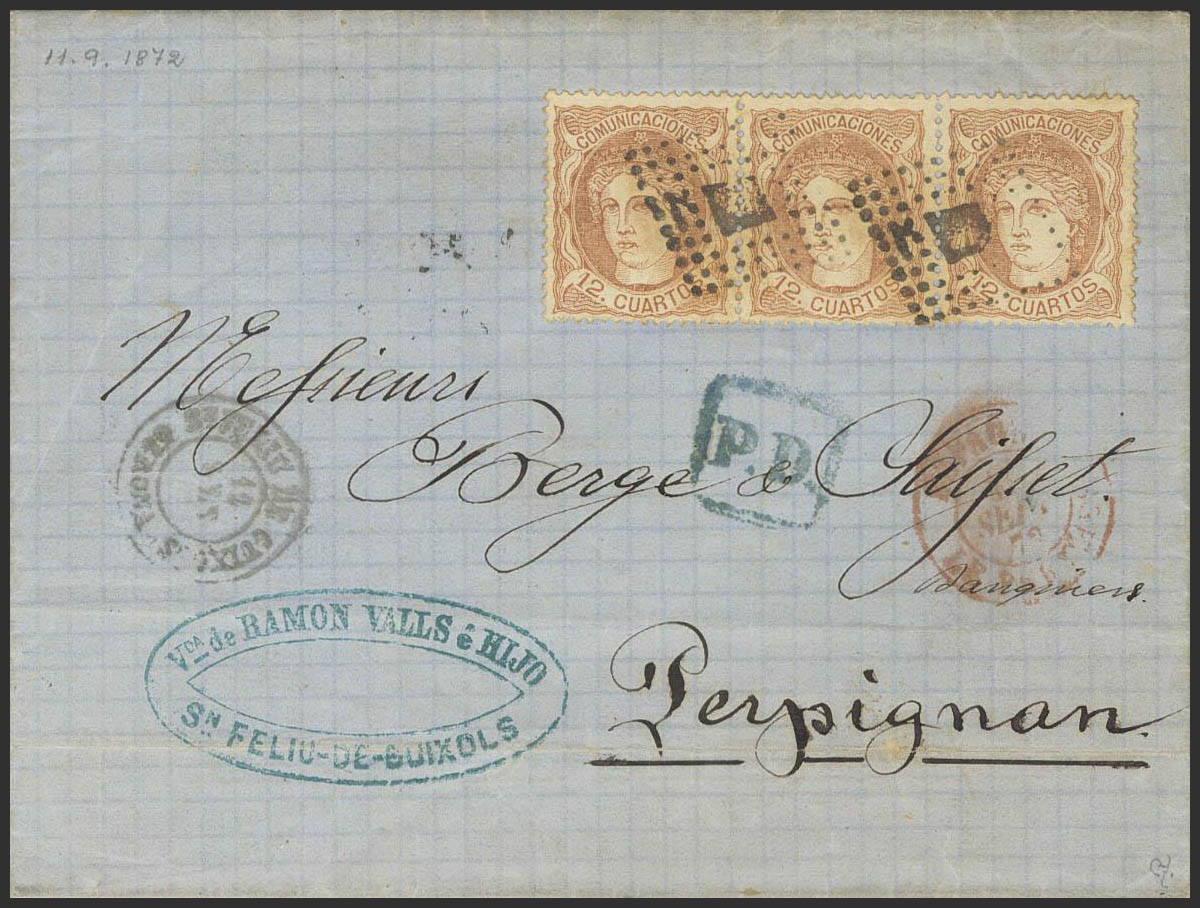 11. 9. 1872
COMUNICACIONES COMUNICACIONES COMUNICACIONES
12. CUARTOS 12. CUARTOS 12. CUARTOS
Messieurs
P.D.
Berge & Saisset.
Banquiers.
Vda de RAMON VALLS é HIJO
SN FELIU-DE-GUIXOLS
Perpignan.